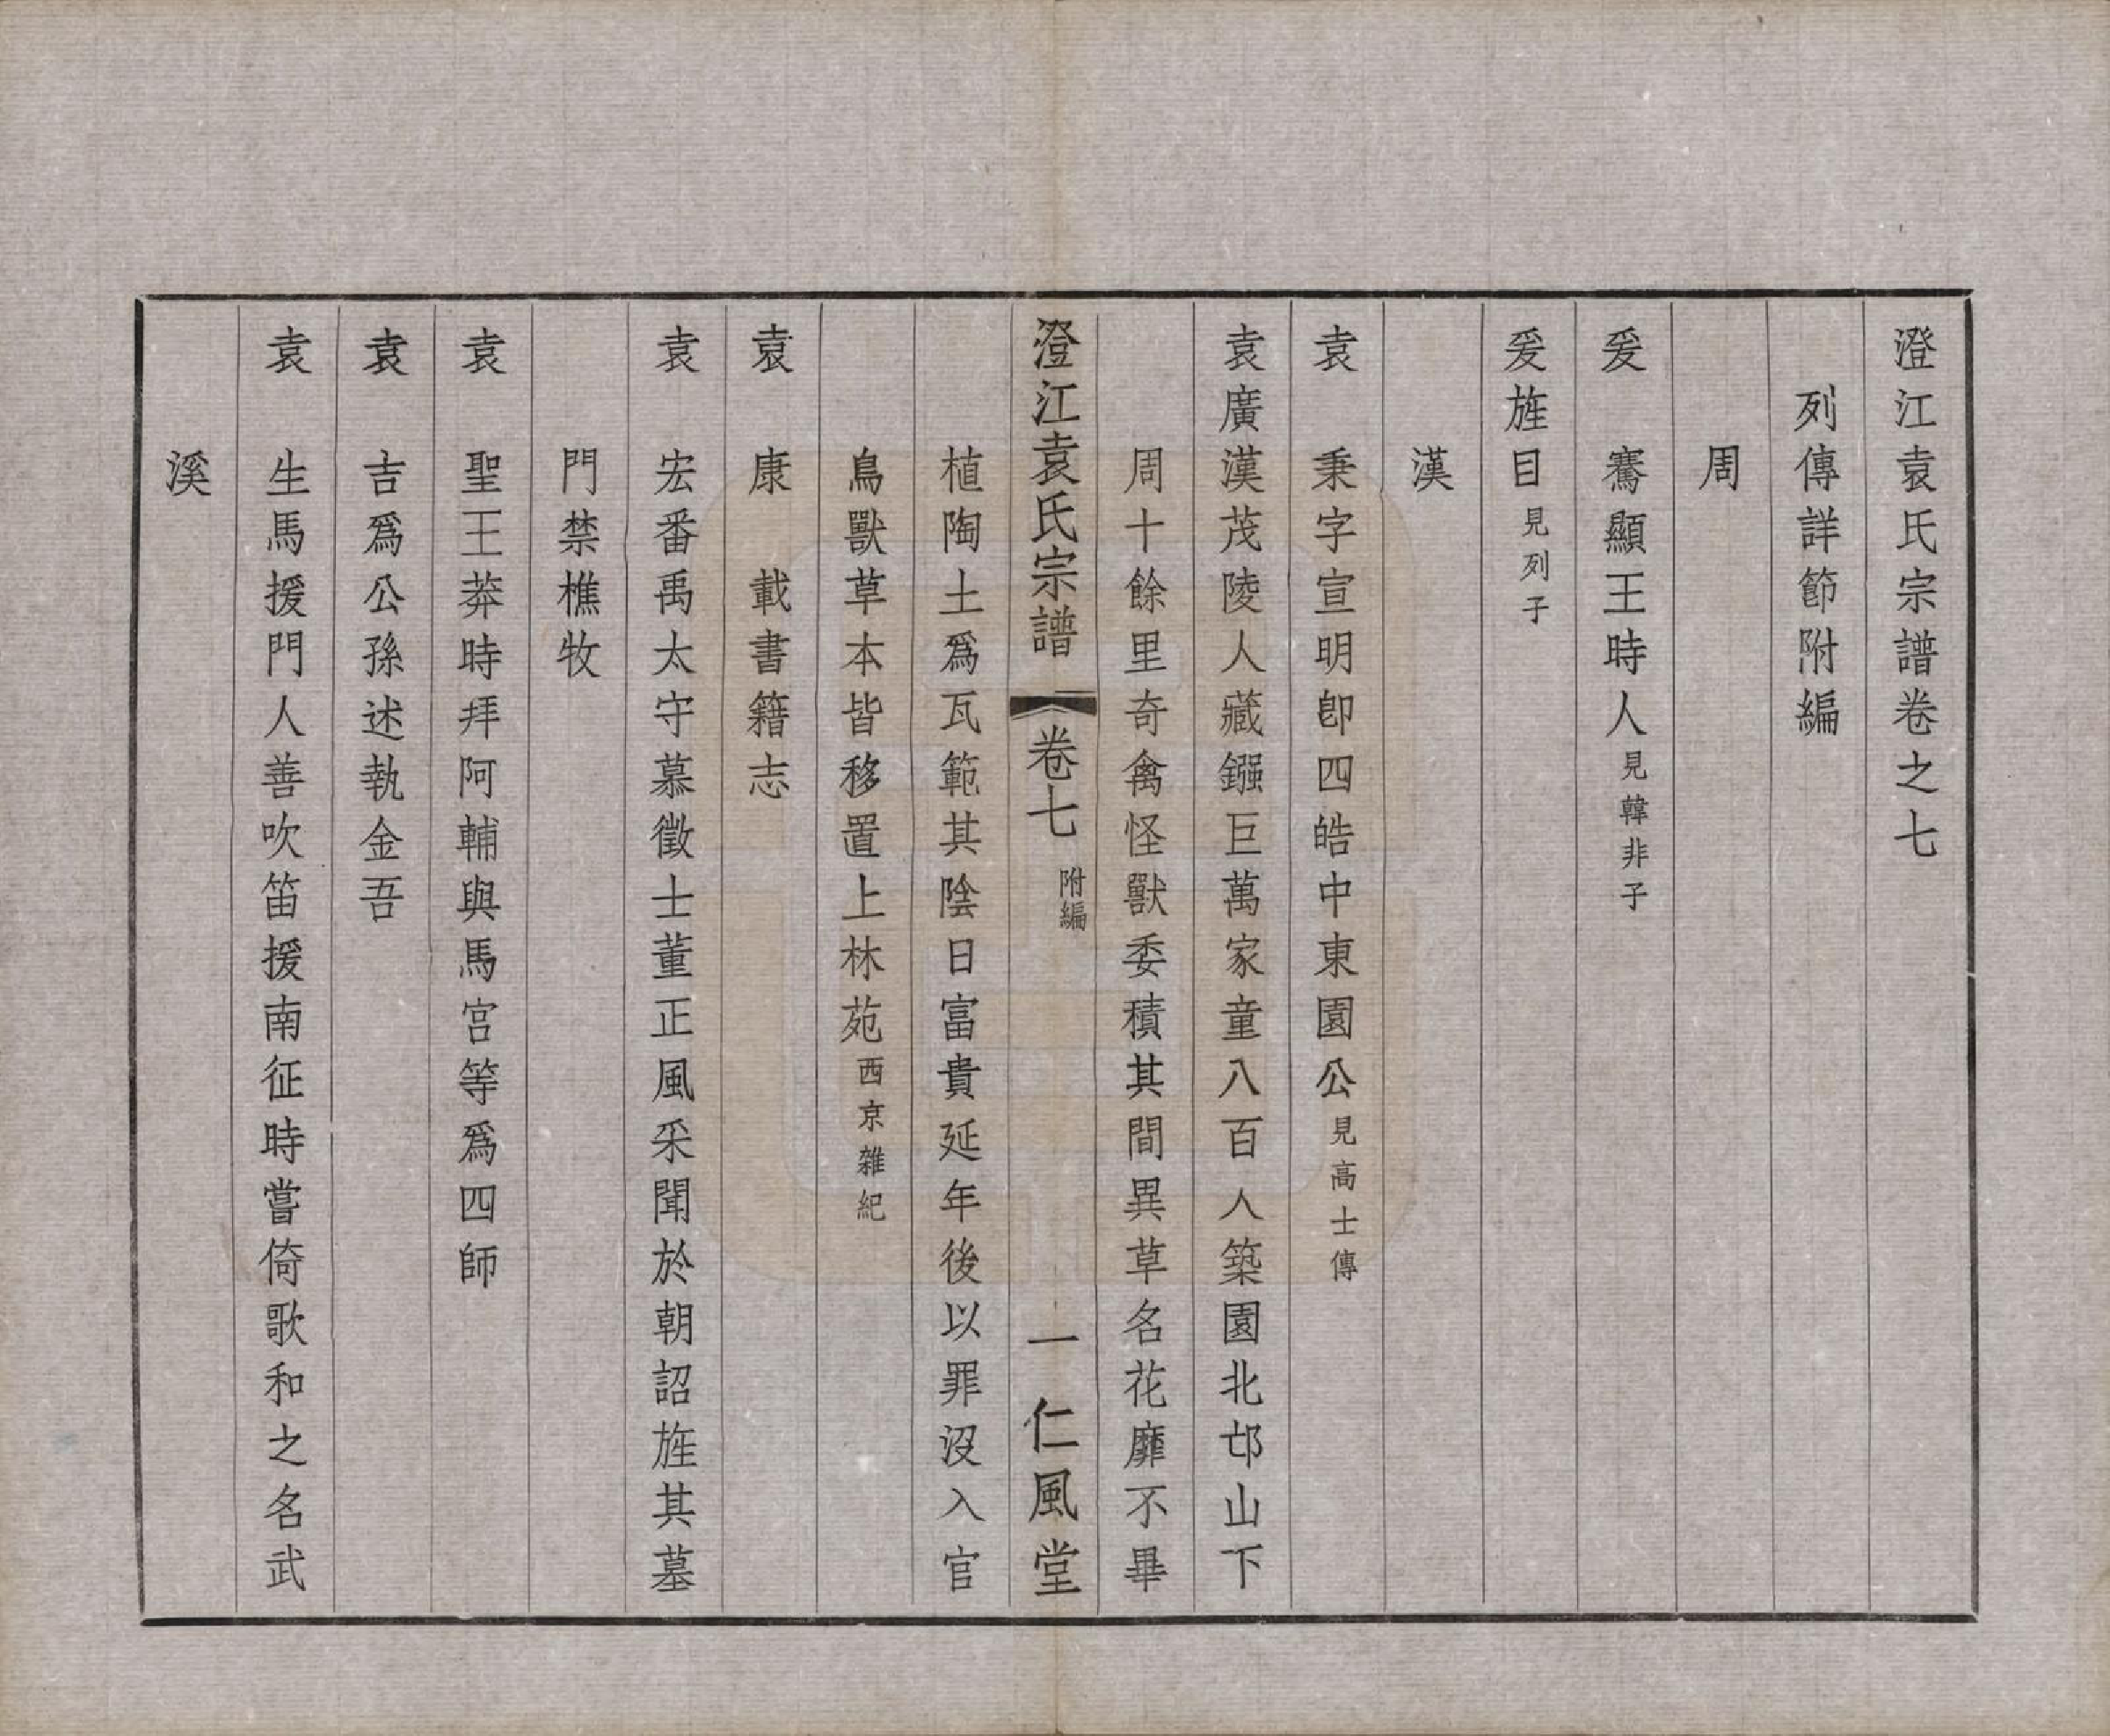 澄江袁氏宗譜卷之七
列傳詳節附編
周
爰　騫顯王時人見韓非子
爰旌目見列子
漢
袁　秉字宣明卽四皓中東園公見高士傳
袁廣漢茂陵人藏鏹巨萬家童八百人築園北邙山下
周十餘里奇禽怪獸委積其間異草名花靡不畢
澄江袁氏宗譜　卷七　附編　一　仁風堂
植陶土爲瓦範其陰曰富貴延年後以罪沒入官
鳥獸草本皆移置上林苑西京雜紀
袁　康　載書籍志
袁　宏番禹太守慕徵士董正風采聞於朝詔旌其墓
門禁樵牧
袁　聖王莽時拜阿輔與馬宮等爲四師
袁　吉爲公孫述執金吾
袁　生馬援門人善吹笛援南征時嘗倚歌和之名武
溪